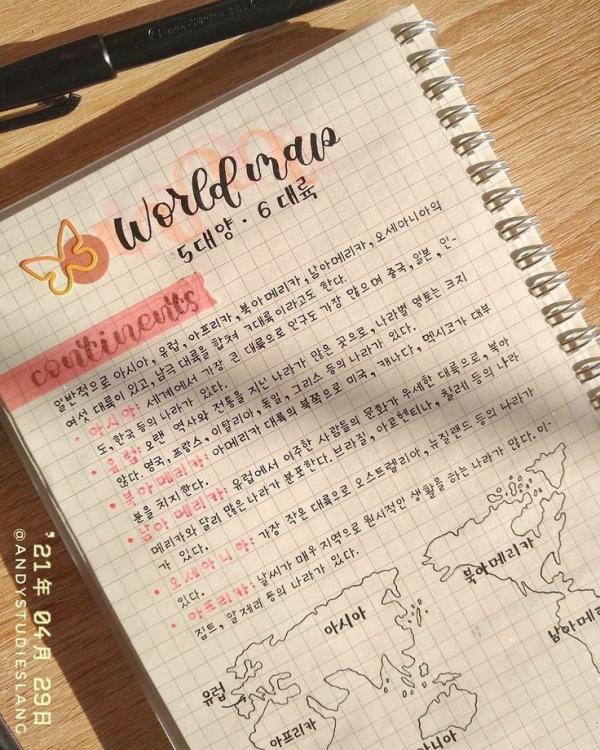 World map
5대양 · 6대륙
continents
일반적으로 아시아, 유럽, 아프리카, 북아메리카, 남아메리카, 오세아니아의
여섯 대륙이 있고, 남극 대륙을 합쳐 7대륙이라고도 한다.
• 아시아: 세계에서 가장 큰 대륙으로 인구도 가장 많으며 중국, 일본, 인-
도, 한국 등의 나라가 있다.
• 유럽: 오랜 역사와 전통을 지닌 나라가 많은 곳으로, 나라별 영토는 크지
않다. 영국, 프랑스, 이탈리아, 독일, 그리스 등의 나라가 있다.
• 북아메리카: 아메리카 대륙의 북쪽으로 미국, 캐나다, 멕시코가 대부
분을 차지한다.
• 남아메리카: 유럽에서 이주한 사람들의 문화가 우세한 대륙으로, 북아
메리카와 달리 많은 나라가 분포한다. 브라질, 아르헨티나, 칠레 등의 나라
가 있다.
• 오세아니아: 가장 작은 대륙으로 오스트렐리아, 뉴질랜드 등의 나라가
있다.
• 아프리카: 날씨가 매우 지역으로 원시적인 생활을 하는 나라가 많다. 이-
집트, 알제리 등의 나라가 있다.
북아메리카
아시아
남아메리
유럽
아프리카
아니아
'21年 04月 29日
@ANDYSTUDIESLANG